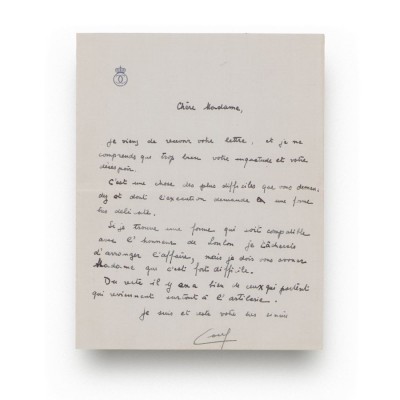 Chère Madame,
je viens de recevoir votre lettre, et je ne
comprends que trop bien votre inquietude et votre
désespoir.
C'est une chose des plus difficiles que vous deman-
dez et dont l'execution demande une forme
très délicate.
Si je trouve une forme qui soit compatible
avec l'honneur de je tâcherais
d'arranger l'affaire, mais je dois vous avouer
Madame que c'est fort difficile.
Du reste il y en a bien de ceux qui partent
qui reviennent surtout à l'artilerie.
je suis et reste votre